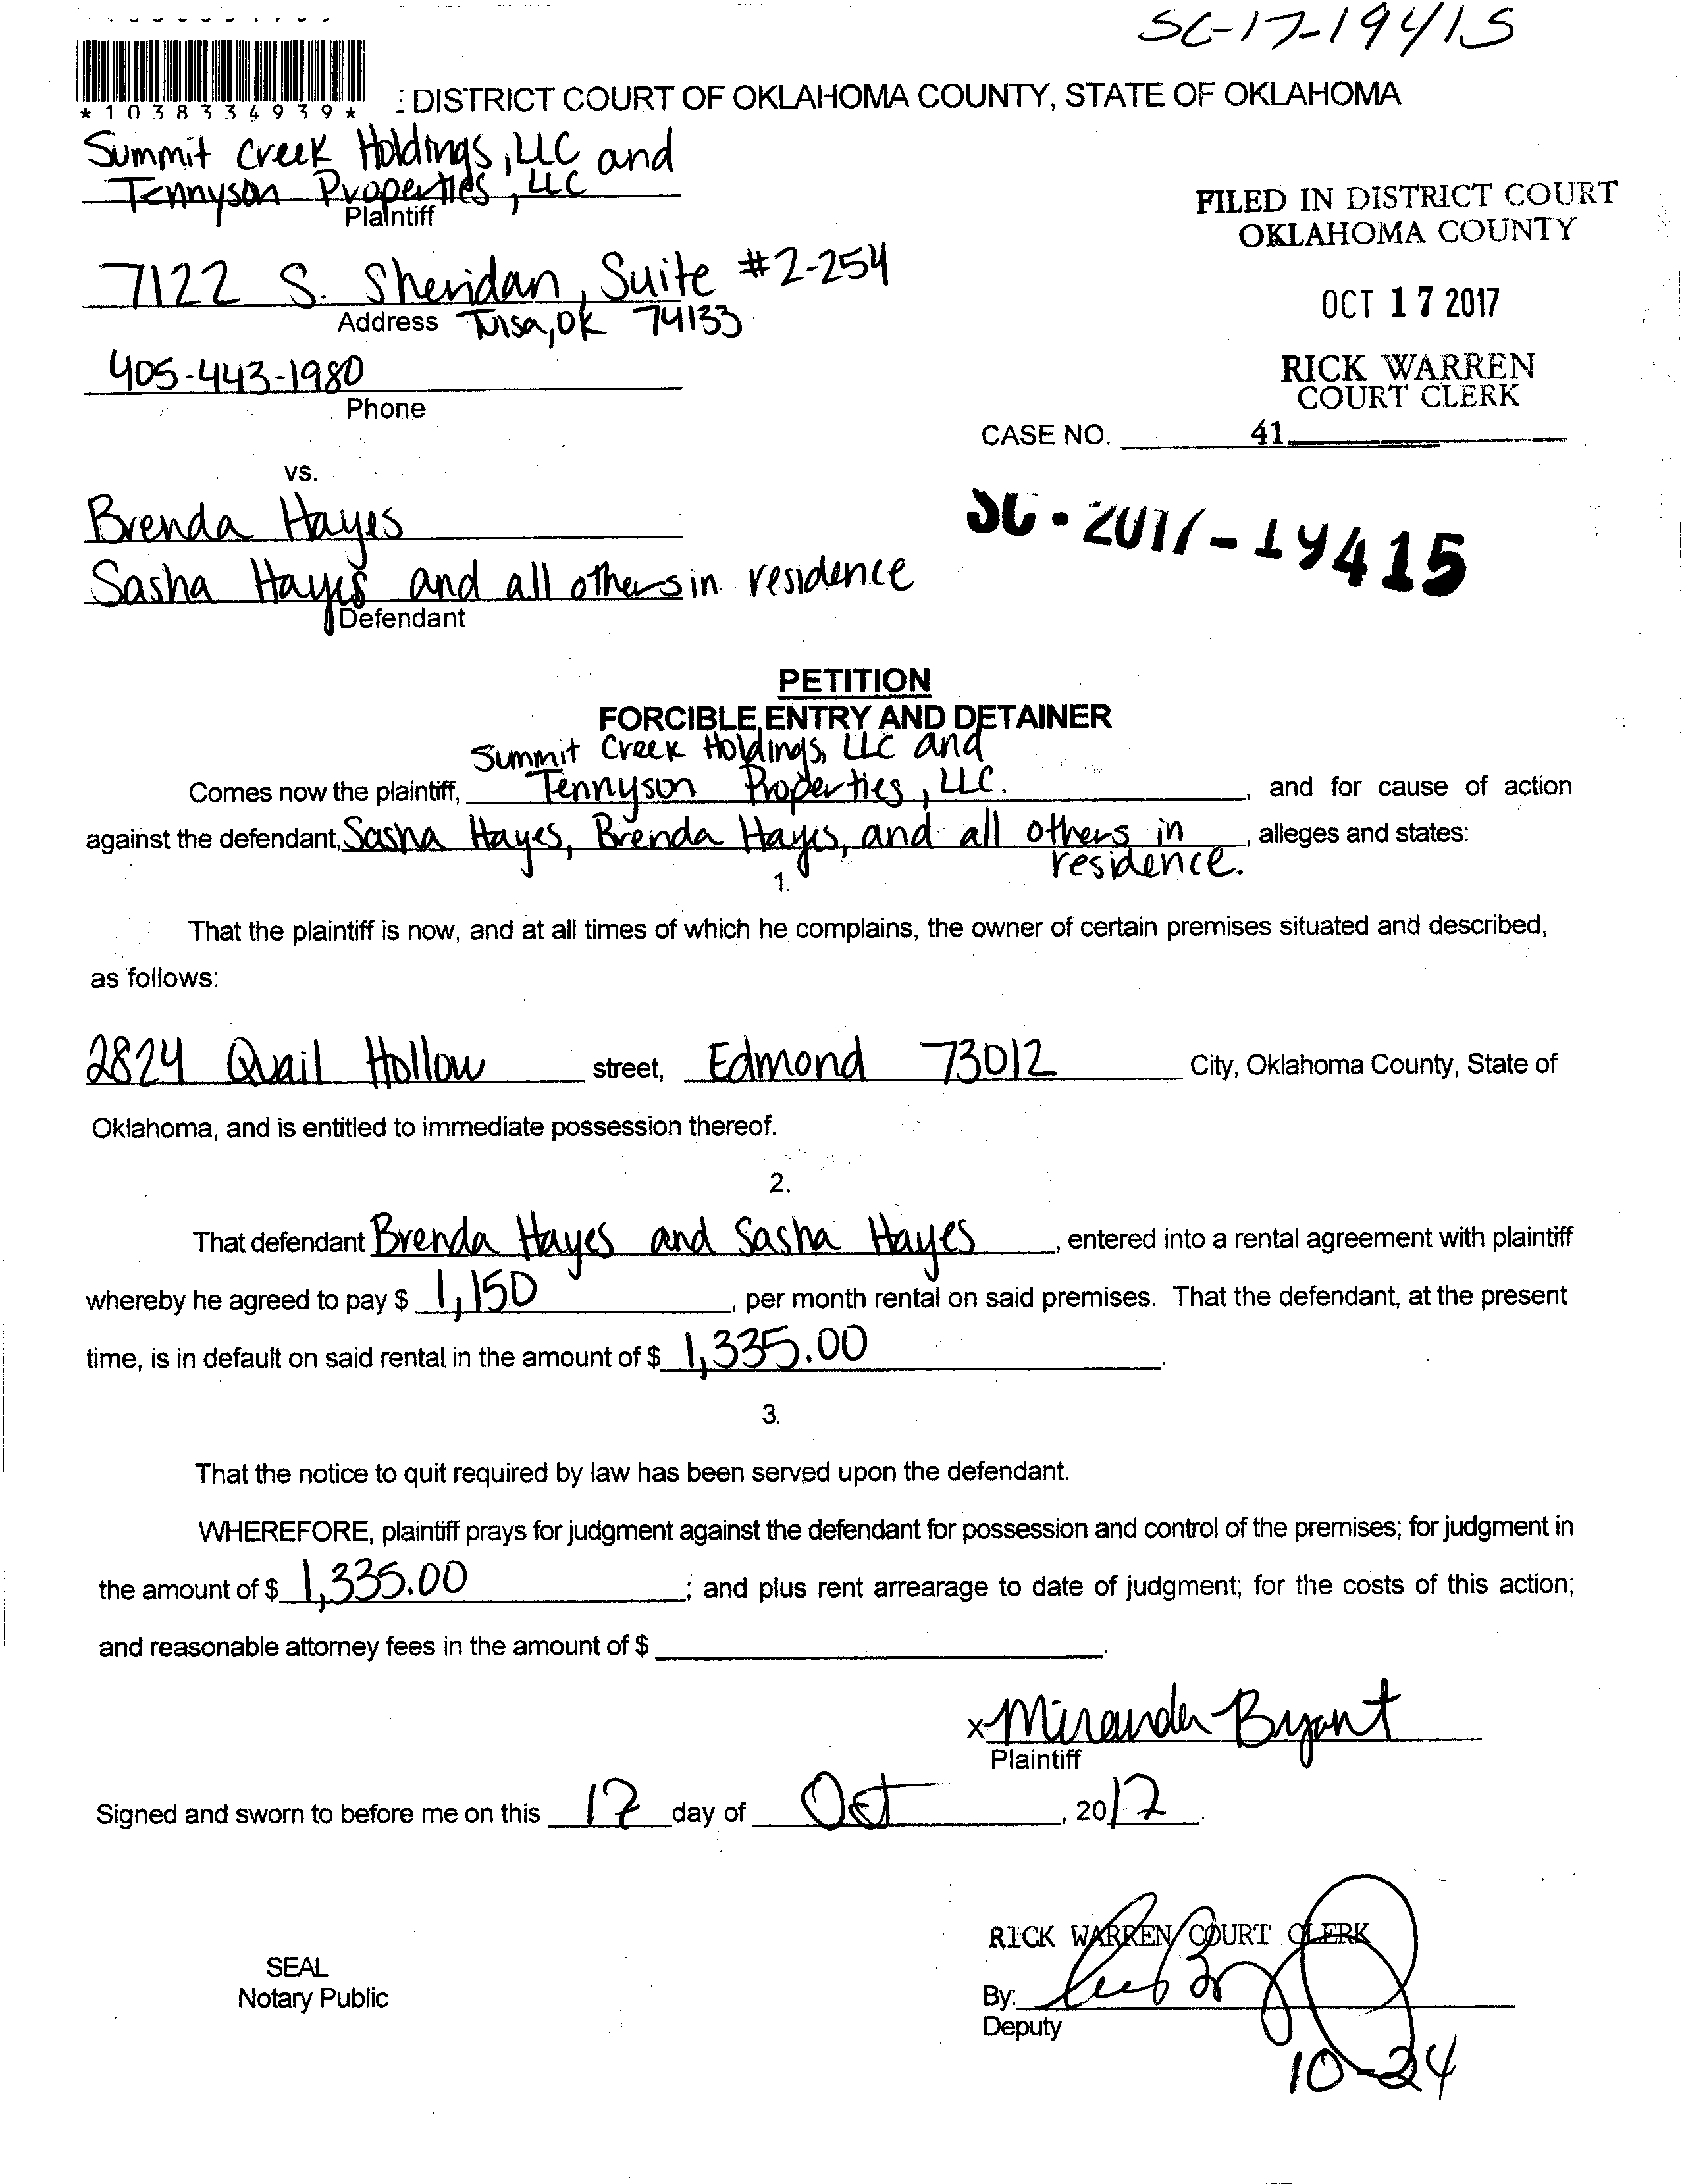 SC-17-19415
*1038334939*
: DISTRICT COURT OF OKLAHOMA COUNTY, STATE OF OKLAHOMA
Summit Creek Holdings, LLC and
Tennyson Properties, LLC
Plaintiff
FILED IN DISTRICT COURT
OKLAHOMA COUNTY
7122 S. Sheridan, Suite #2-254
Address Tulsa, OK 74133
OCT 17 2017
405-443-1980
Phone
RICK WARREN
COURT CLERK
CASE NO. 41
vs.
Brenda Hayes
SC - 2017 - 19415
Sasha Hayes and all others in residence
Defendant
PETITION
FORCIBLE ENTRY AND DETAINER
Summit Creek Holdings, LLC and
Comes now the plaintiff, Tennyson Properties, LLC. , and for cause of action
against the defendant, Sasha Hayes, Brenda Hayes, and all others in , alleges and states:
residence.
1.
That the plaintiff is now, and at all times of which he complains, the owner of certain premises situated and described,
as follows:
2824 Quail Hollow street, Edmond 73012 City, Oklahoma County, State of
Oklahoma, and is entitled to immediate possession thereof.
2.
That defendant Brenda Hayes and Sasha Hayes , entered into a rental agreement with plaintiff
whereby he agreed to pay $ 1,150 , per month rental on said premises. That the defendant, at the present
time, is in default on said rental in the amount of $ 1,335.00 .
3.
That the notice to quit required by law has been served upon the defendant.
WHEREFORE, plaintiff prays for judgment against the defendant for possession and control of the premises; for judgment in
the amount of $ 1,335.00 ; and plus rent arrearage to date of judgment; for the costs of this action;
and reasonable attorney fees in the amount of $ .
x Miranda Bryant
Plaintiff
Signed and sworn to before me on this 17 day of Oct , 2017 .
RICK WARREN COURT CLERK
SEAL
Notary Public
By:
Deputy
10-24